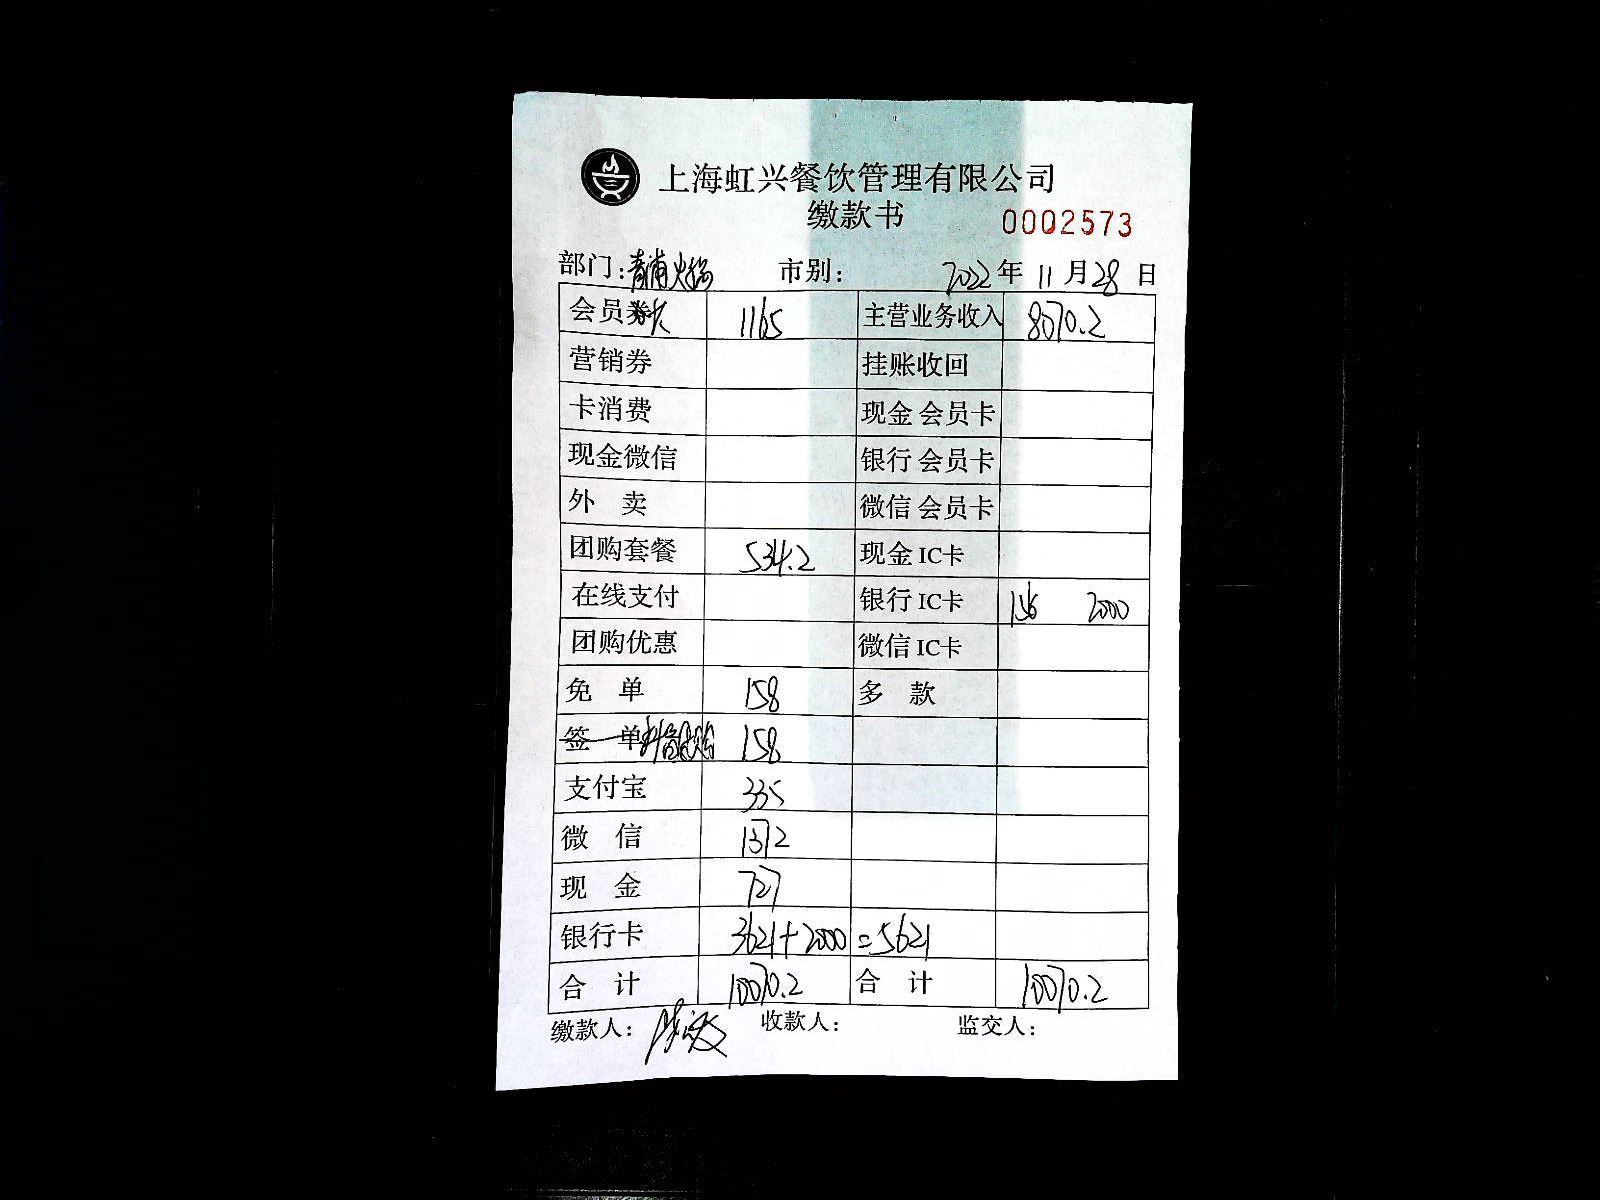 上海虹兴餐饮管理有限公司
缴款书 0002573
部门：青浦火锅 市别： 2022年11月28日
会员 1165 主营业务收入 8070.2
营销券 挂账收回
卡消费 现金 会员卡
现金微信 银行 会员卡
外 卖 微信 会员卡
团购套餐 534.2 现金 IC卡
在线支付 银行 IC卡 156 2000
团购优惠 微信 IC卡
免 单 158 多 款
签 单 抖音团购 158
支付宝 335
微 信 1372
现 金 727
银行卡 3621+2000=5621
合 计 10070.2 合 计 10070.2
缴款人： 收款人： 监交人：